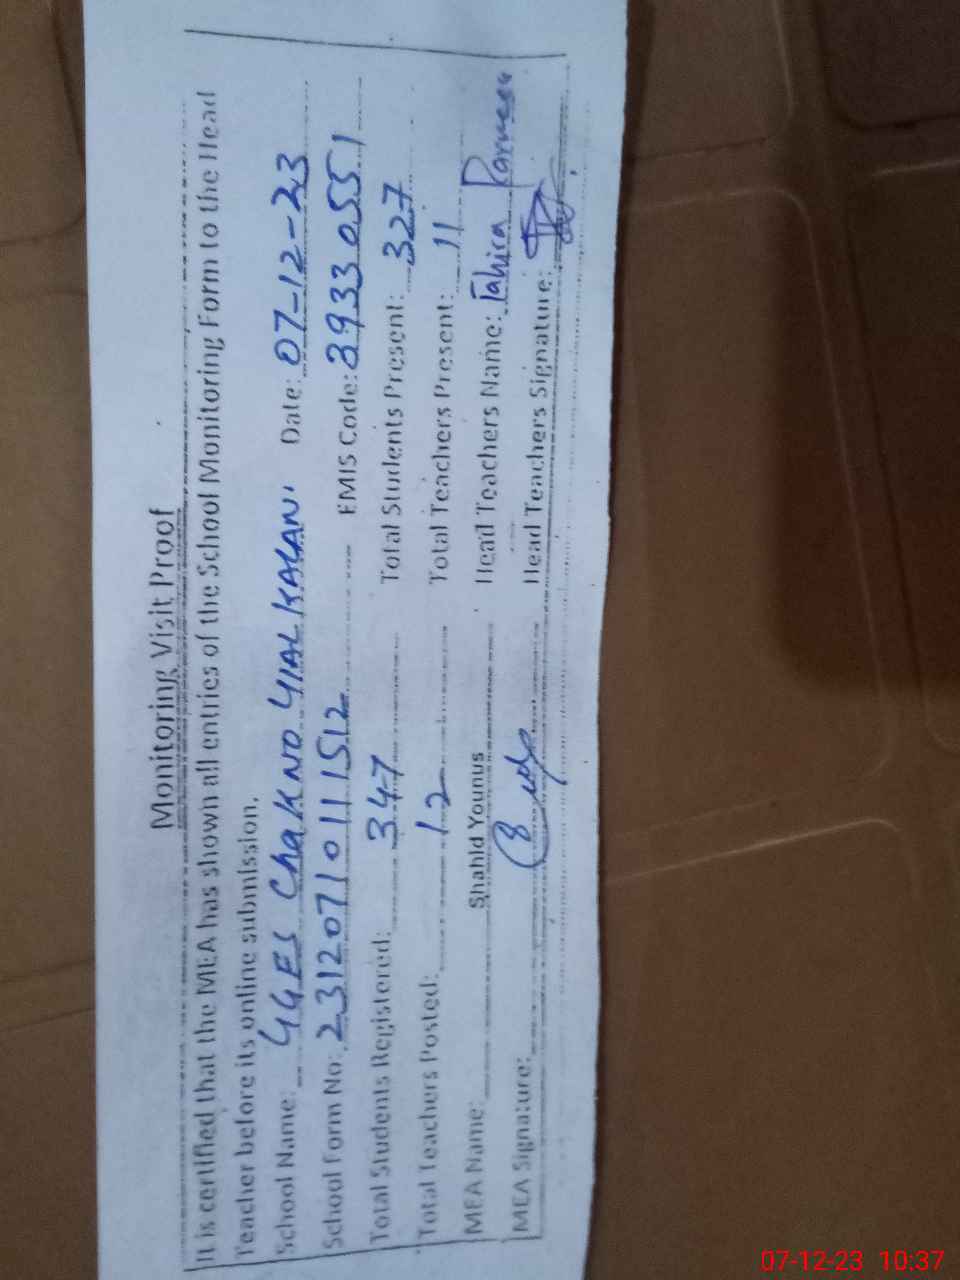 Monitoring Visit Proof
It is certified that the MEA has shown all entries of the School Monitoring Form to the Head
Teacher before its online submission.
School Name: GGES ChAK NO 41AL KALAN. Date: 07-12-23
School Form No: 23120710111512 EMIS Code: 39330551
Total Students Registered: 347 Total Students Present: 327
Total Teachers Posted: 12 Total Teachers Present: 11
MEA Name: Shahid Younus Head Teachers Name: Tahira Parveen
MEA Signature: Head Teachers Signature:
07-12-23 10:37